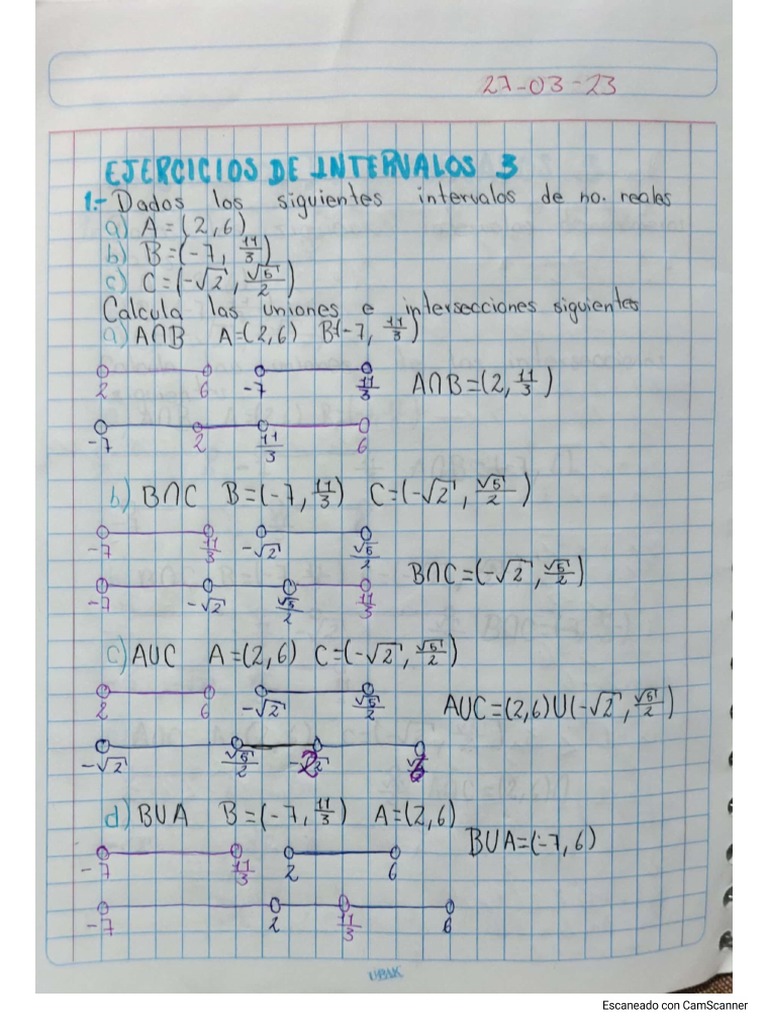 27-03-23
EJERCICIOS DE INTERVALOS 3
1.- Dados los siguientes intervalos de no. reales
a) A=(2,6)
b) B=(-7, 11/3)
c) C=(-√2, √5/2)
Calcula las uniones e intersecciones siguientes
a) A∩B A=(2,6) B(-7, 11/3)
2 6 -7 11/3 A∩B=(2, 11/3)
-7 2 11/3 6
b) B∩C B=(-7, 11/3) C=(-√2, √5/2)
-7 11/3 -√2 √5/2
B∩C=(-√2, √5/2)
-7 -√2 √5/2 11/3
c) AUC A=(2,6) C=(-√2, √5/2)
2 6 -√2 √5/2
AUC=(2,6)U(-√2, √5/2)
-√2 √5/2 2 6
d) BUA B=(-7, 11/3) A=(2,6)
BUA=(-7,6)
-7 11/3 2 6
-7 2 11/3 6
Escaneado con CamScanner